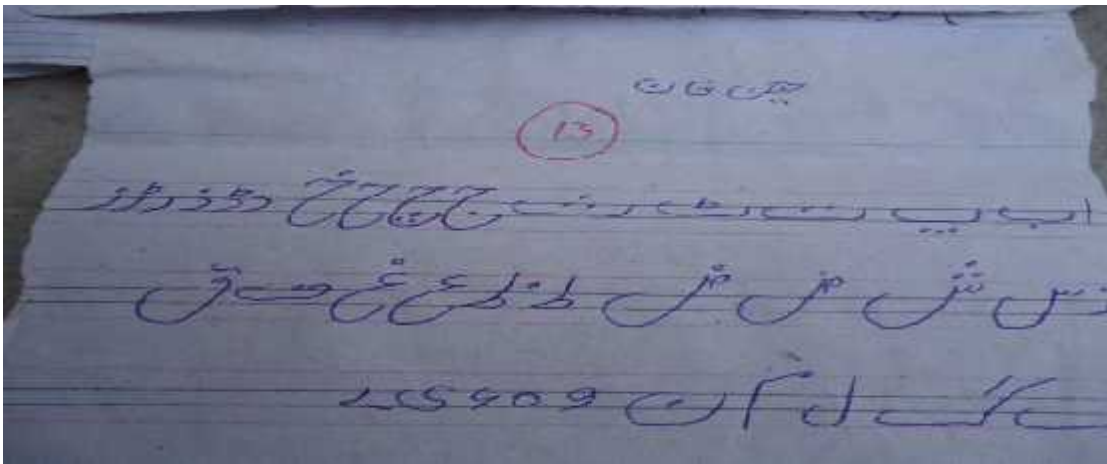 خان
13
ا ب پ ت ٹ ث ج چ ح خ د ڈ ذ ر ڑ ز
س ش ص ض ط ظ ع غ ف ق
ک گ ل م ن و ہ ء ی ے